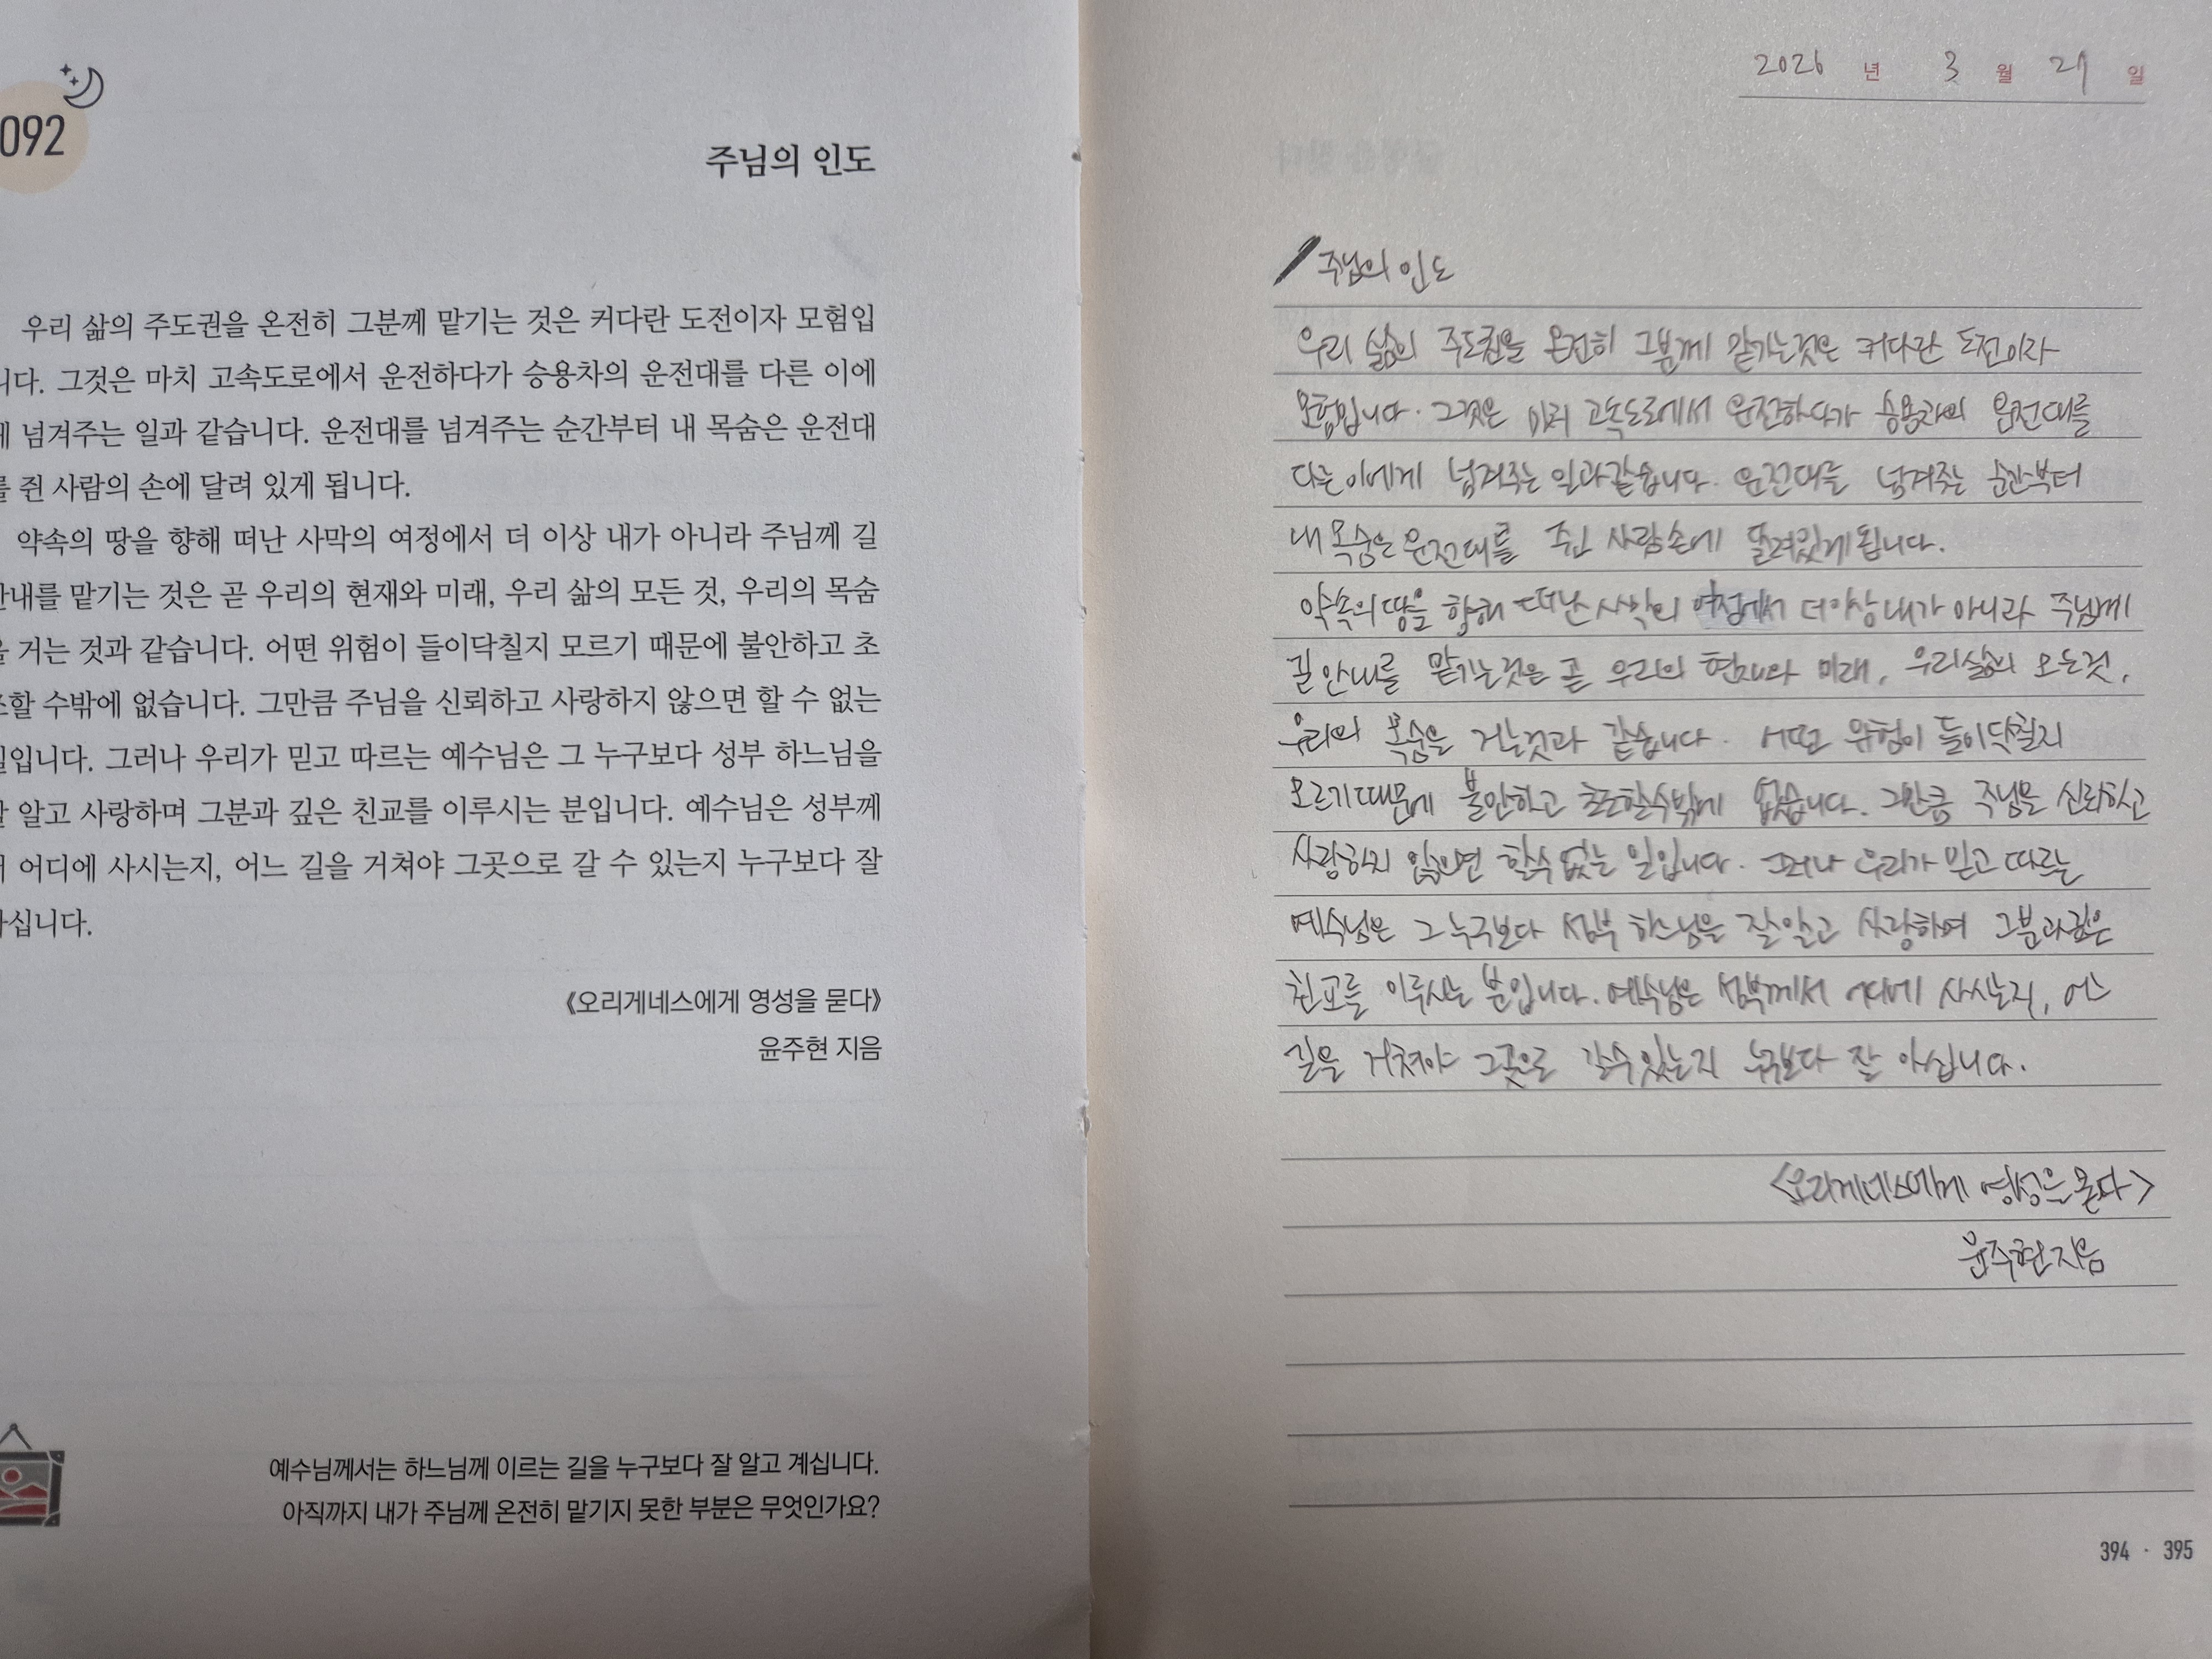 092
주님의 인도
우리 삶의 주도권을 온전히 그분께 맡기는 것은 커다란 도전이자 모험입
니다. 그것은 마치 고속도로에서 운전하다가 승용차의 운전대를 다른 이에
게 넘겨주는 일과 같습니다. 운전대를 넘겨주는 순간부터 내 목숨은 운전대
를 쥔 사람의 손에 달려 있게 됩니다.
약속의 땅을 향해 떠난 사막의 여정에서 더 이상 내가 아니라 주님께 길
안내를 맡기는 것은 곧 우리의 현재와 미래, 우리 삶의 모든 것, 우리의 목숨
을 거는 것과 같습니다. 어떤 위험이 들이닥칠지 모르기 때문에 불안하고 초
조할 수밖에 없습니다. 그만큼 주님을 신뢰하고 사랑하지 않으면 할 수 없는
일입니다. 그러나 우리가 믿고 따르는 예수님은 그 누구보다 성부 하느님을
잘 알고 사랑하며 그분과 깊은 친교를 이루시는 분입니다. 예수님은 성부께
서 어디에 사시는지, 어느 길을 거쳐야 그곳으로 갈 수 있는지 누구보다 잘
아십니다.
《오리게네스에게 영성을 묻다》
윤주현 지음
예수님께서는 하느님께 이르는 길을 누구보다 잘 알고 계십니다.
아직까지 내가 주님께 온전히 맡기지 못한 부분은 무엇인가요?
2026 년 3 월 21 일
주님의 인도
우리 삶의 주도권을 온전히 그분께 맡기는것은 커다란 도전이자
모험입니다. 그것은 마치 고속도로에서 운전하다가 승용차의 운전대를
다른이에게 넘겨주는 일과같습니다. 운전대를 넘겨주는 순간부터
내 목숨은 운전대를 쥔 사람손에 달려있게됩니다.
약속의 땅을 향해 떠난 사막의 여정에서 더이상 내가 아니라 주님께
길 안내를 맡기는것은 곧 우리의 현재와 미래, 우리삶의 모든것,
우리의 목숨을 거는것과 같습니다. 어떤 위험이 들이닥칠지
모르기때문에 불안하고 초조할수밖에 없습니다. 그만큼 주님을 신뢰하고
사랑하지 않으면 할수 없는 일입니다. 그러나 우리가 믿고 따르는
예수님은 그 누구보다 성부 하느님을 잘알고 사랑하며 그분과깊은
친교를 이루시는 분입니다. 예수님은 성부께서 어디에 사시는지, 어느
길을 거쳐야 그곳으로 갈수있는지 누구보다 잘 아십니다.
<오리게네스에게 영성을 묻다>
윤주현 지음
394 · 395